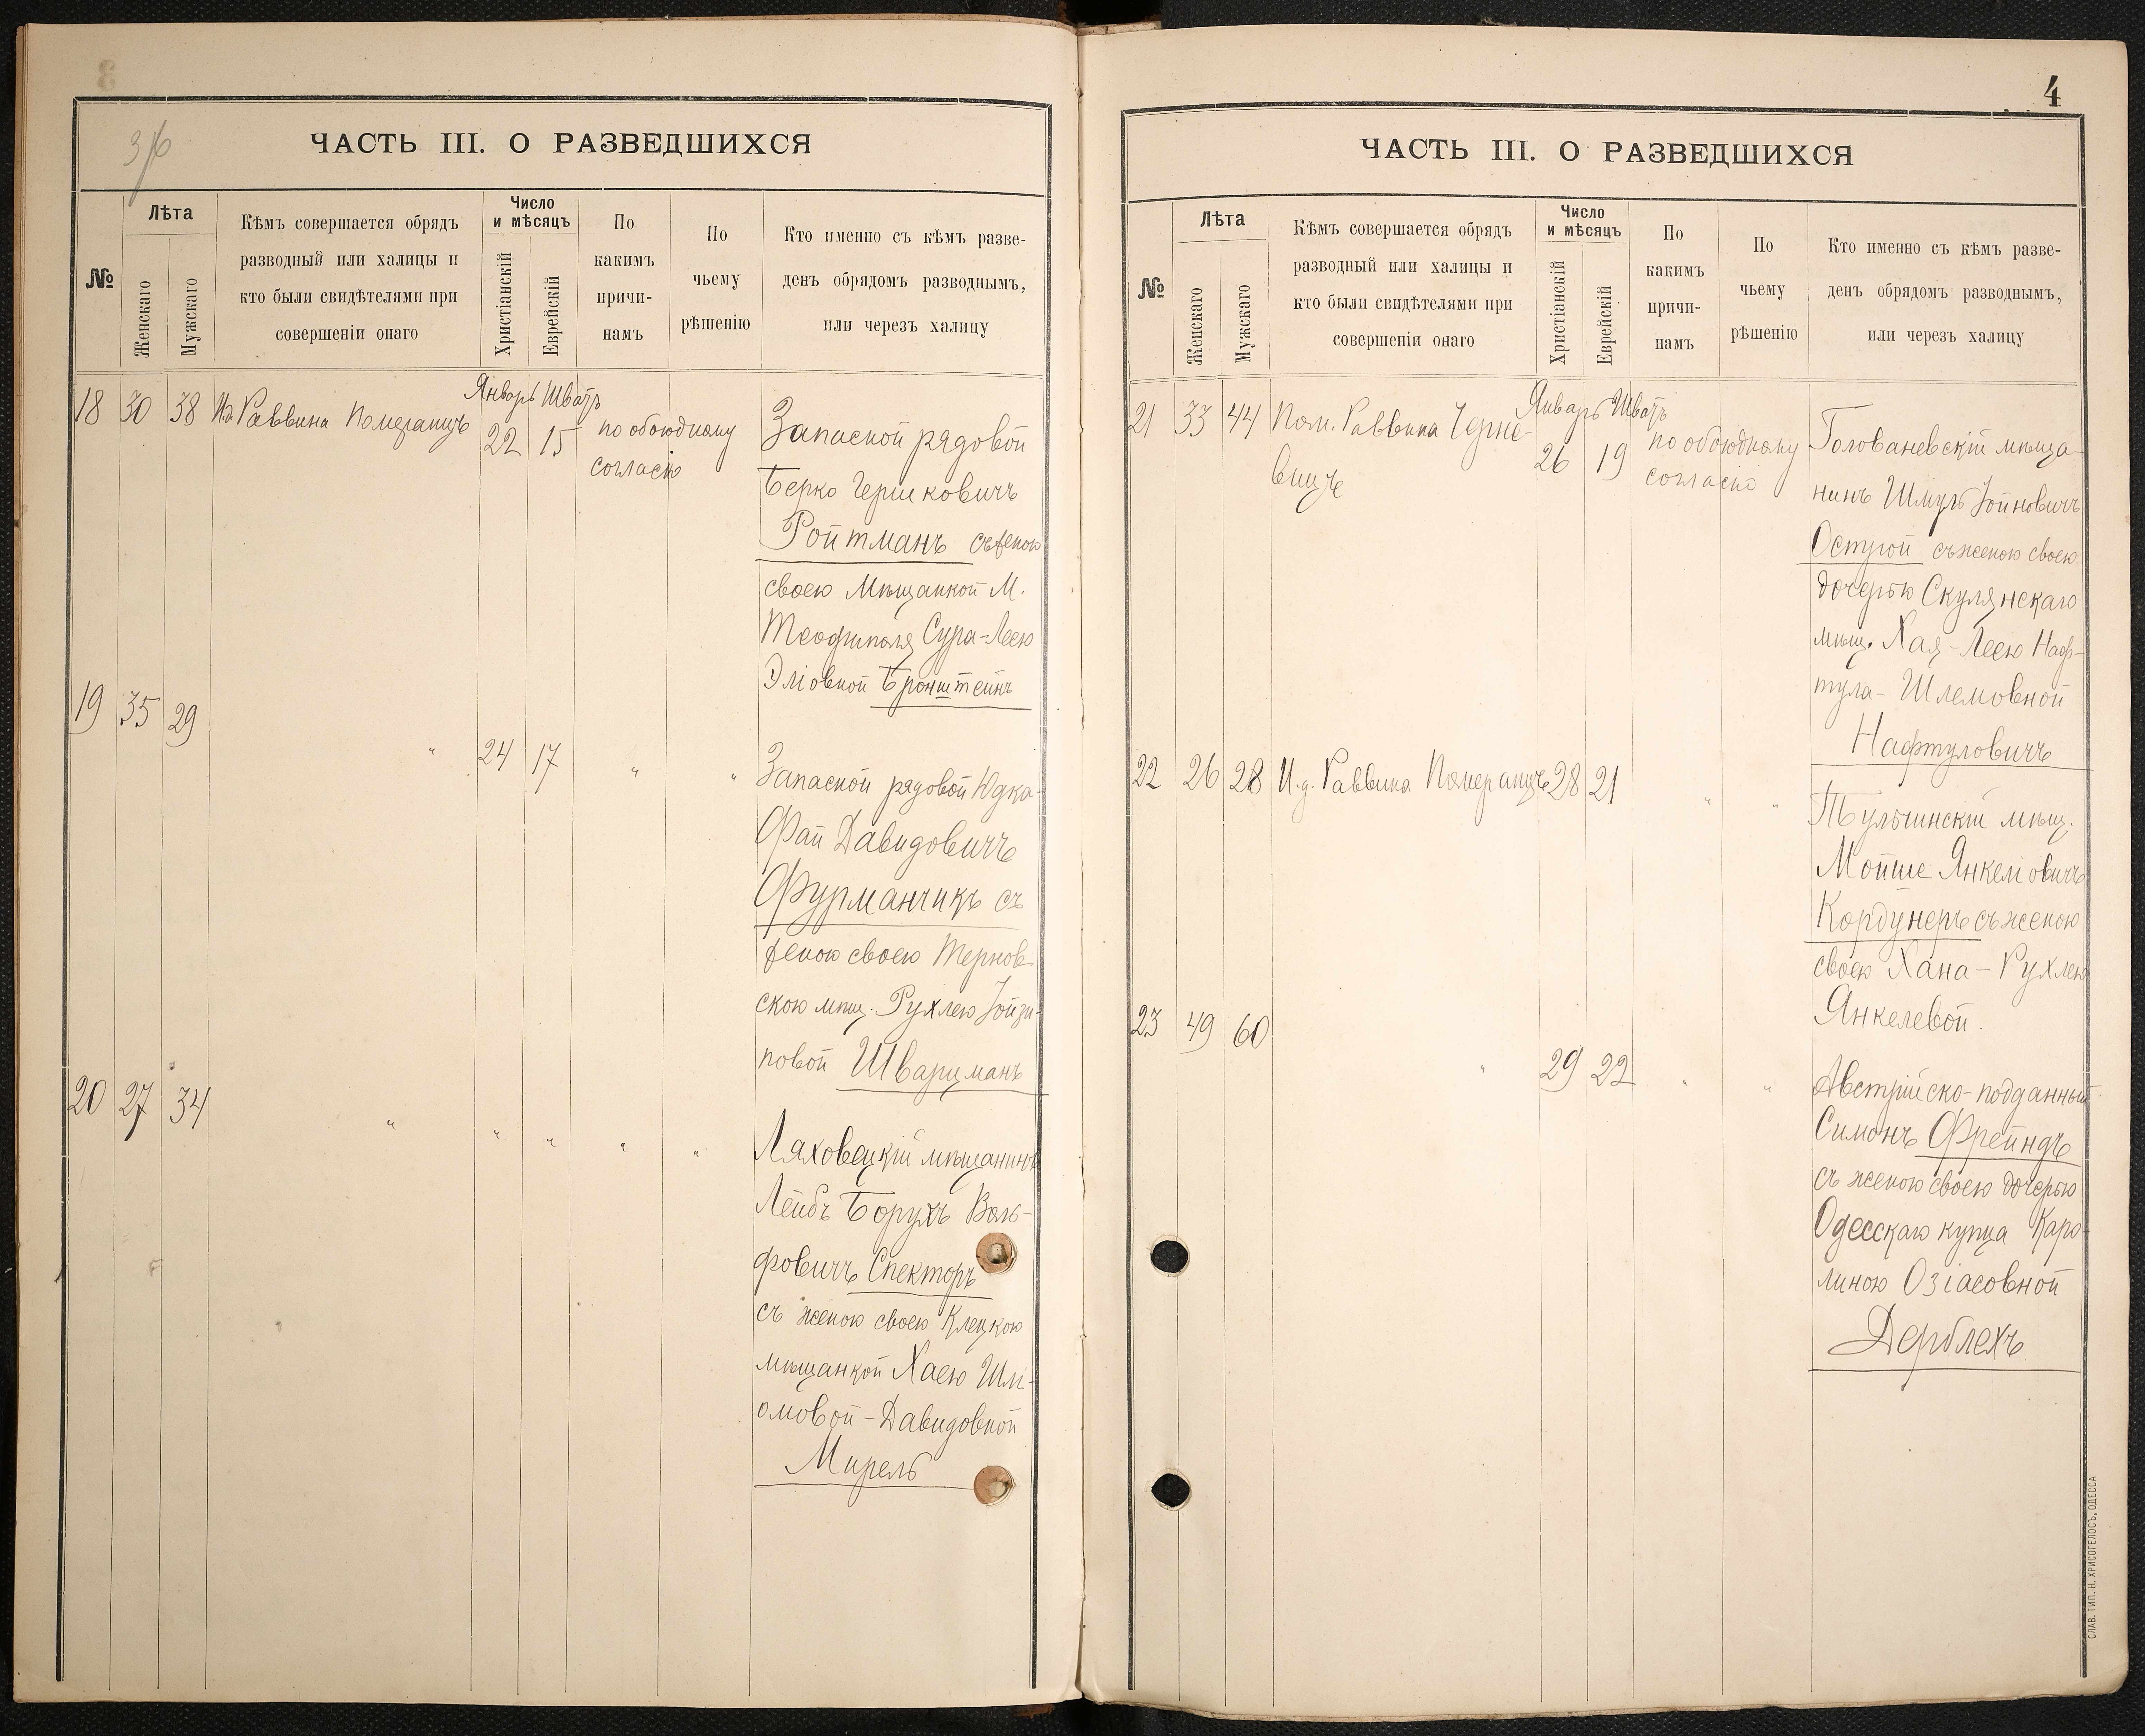 3/6
ЧАСТЬ III. О РАЗВЕДШИХСЯ
№
Лѣта
Женскаго
Мужскаго
Кѣмъ совершается обрядъ
разводный или халицы и
кто были свидѣтелями при
совершеніи онаго
Число
и мѣсяцъ
Христіанскій
Еврейскій
По
какимъ
причи-
намъ
По
чьему
рѣшенію
Кто именно съ кѣмъ разве-
денъ обрядомъ разводнымъ,
или черезъ халицу
Январь Шватъ
18 30 38 И.д. Раввина Померанцъ 22 15 по обоюдному
согласію
Запасной рядовой
Берко Гершковичъ
Ройтманъ съ женою
своею Мѣщанкой М.
Теофиполя Сура-Леею
Эліовной Бронштейнъ
19 35 29 " 24 17 " "
Запасной рядовой Юдка-
Фай Давидовичъ
Фурманчикъ съ
женою своею Тернов
скою мѣщ. Рухлею Іойзи-
повой Шварцманъ
20 27 34 " " " " "
Ляховецкій мѣщанинъ
Лейбъ Борухъ Воль-
фовичъ Спекторъ
съ женою своею Клецкою
мѣщанкой Хаею Шл-
омовой-Давидовной
Мирель
4
ЧАСТЬ III. О РАЗВЕДШИХСЯ
№
Лѣта
Женскаго
Мужскаго
Кѣмъ совершается обрядъ
разводный или халицы и
кто были свидѣтелями при
совершеніи онаго
Число
и мѣсяцъ
Христіанскій
Еврейскій
По
какимъ
причи-
намъ
По
чьему
рѣшенію
Кто именно съ кѣмъ разве-
денъ обрядомъ разводнымъ,
или черезъ халицу
Январь Шватъ
21 33 44 Пом. Раввина Черне-
вицъ 26 19 по обоюдному
согласію
Голованевскій мѣща-
нинъ Шмуль Іойновичъ
Острой съ женою своею
дочерью Скулянскаго
мѣщ. Хая-Леею Наф-
тула-Шлемовной
Нафтуловичъ
22 26 28 И.д. Раввина Померанцъ 28 21 " "
Тульчинскій мѣщ.
Мойше Янкеліовичъ
Кордунеръ съ женою
своею Хана-Рухлею
Янкелевой.
23 49 60 " 29 22 " "
Австрійско-подданный
Симонъ Фрейндъ
съ женою своею дочерью
Одесскаго купца Каро-
линою Озіасовной
Дерблехъ
СЛАВ. ТИП. Н. ХРИСОГЕЛОСЪ, ОДЕССА